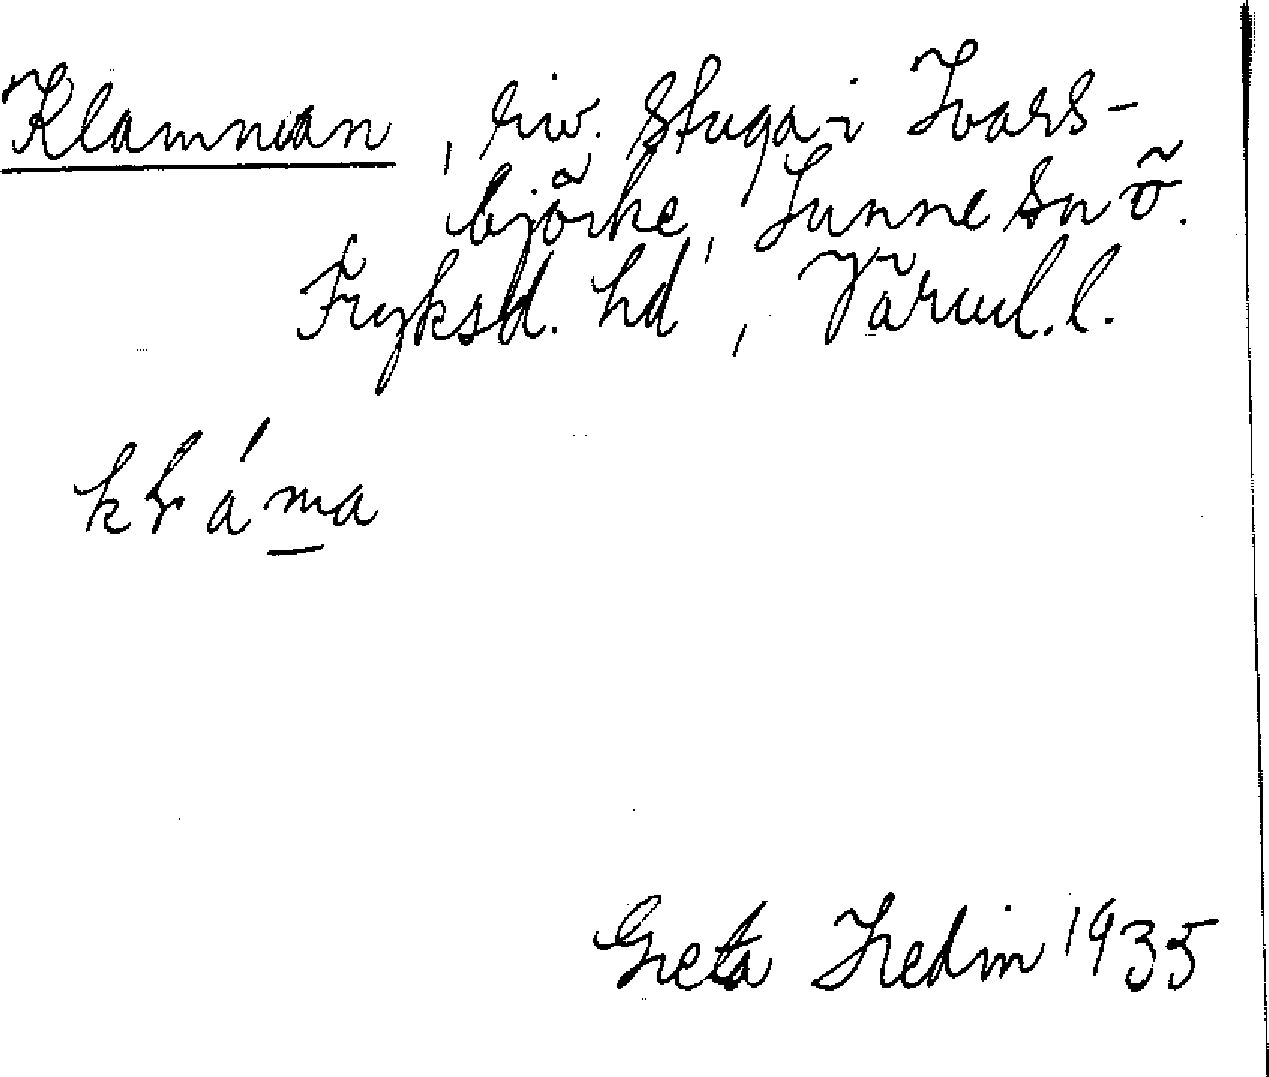 Klamman, riv. stuga i Ivars-
björke, Sunne sn ö.
Fryksd. hd, Värml. l.
Greta Hedin 1935